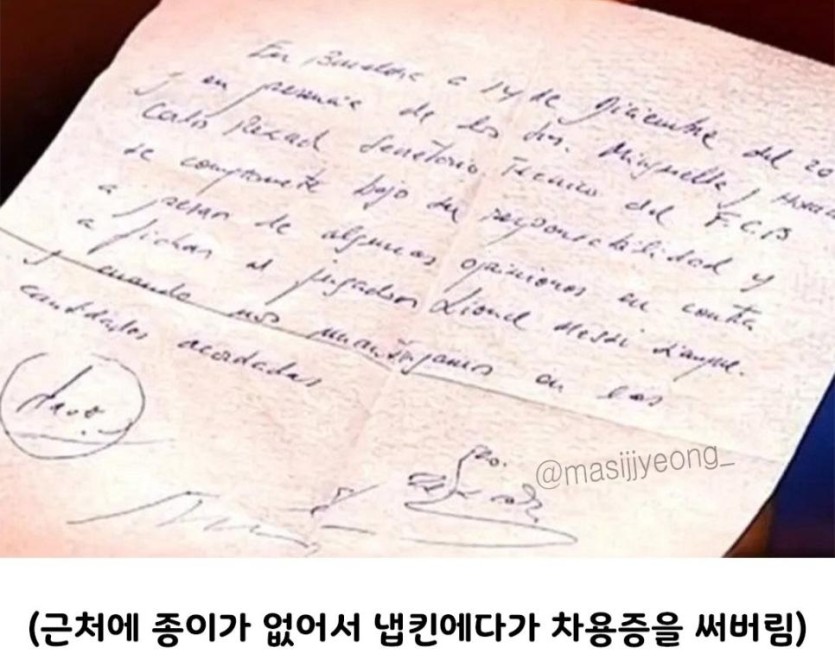 En Barcelona a 14 de Diciembre del 20
y en presencia de los Srs. Minguella y Horacio
Carlos Rexach Secretario Técnico del F.C.B
se compromete bajo su responsabilidad y
a pesar de algunas opiniones en contra
a fichar al jugador Lionel Messi siempre
y cuando nos mantengamos en las
cantidades acordadas
@masijjjyeong_
(근처에 종이가 없어서 냅킨에다가 차용증을 써버림)